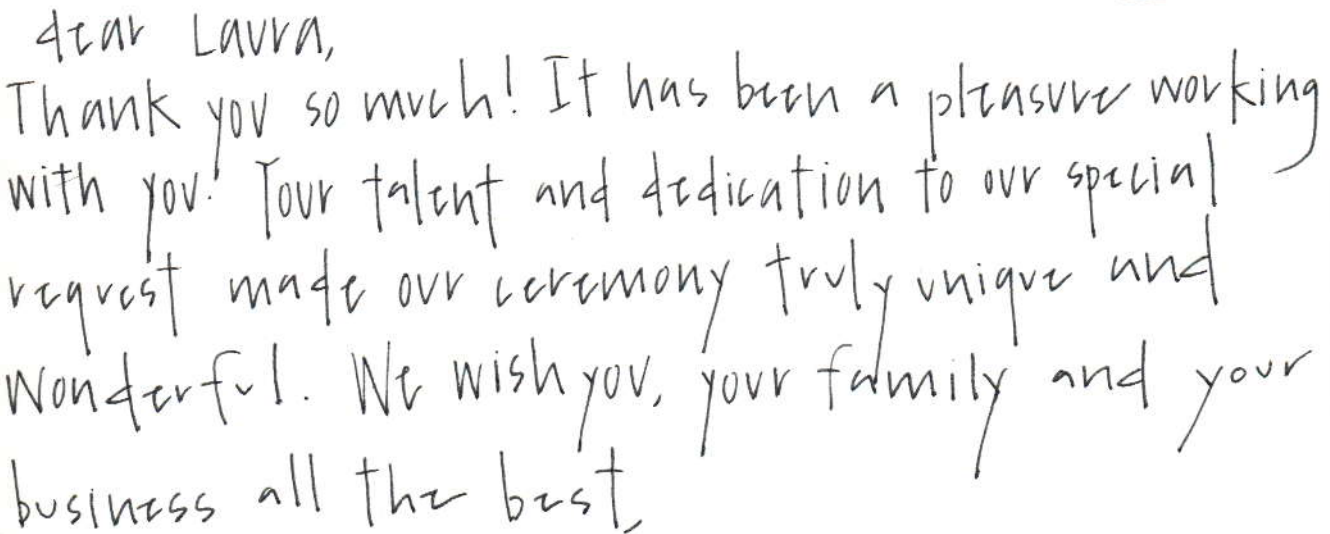 dear Laura,
Thank you so much! It has been a pleasure working
with you! Your talent and dedication to our special
request made our ceremony truly unique and
wonderful. We wish you, your family and your
business all the best,